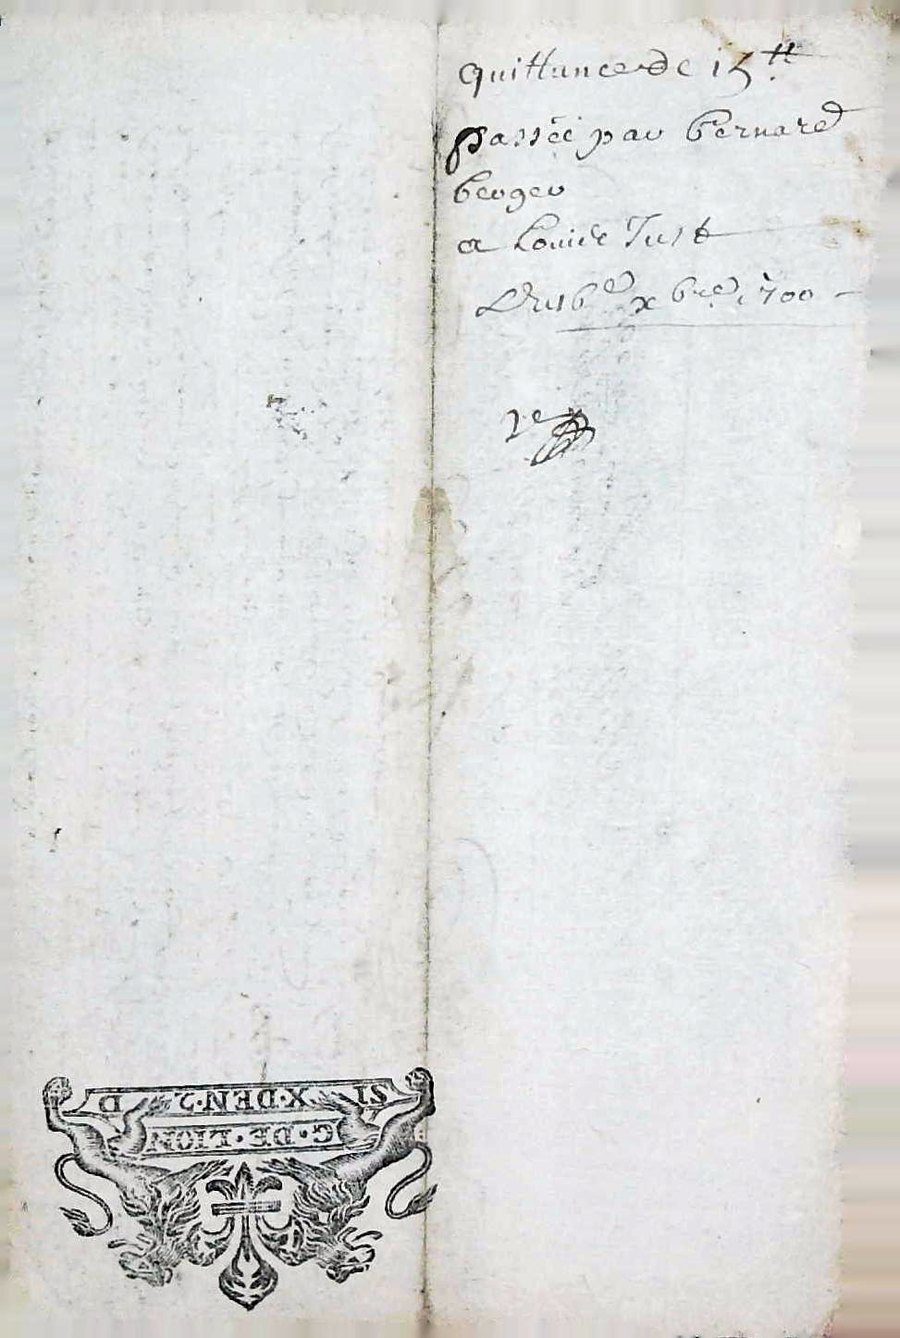 Quittance de 15ᵗᵗ
passée par Bernard
berger
a Louise Just
Du 6ᵉ xbre 1700
2ᵉ
G·DE·LION
SIX·DEN·2·D